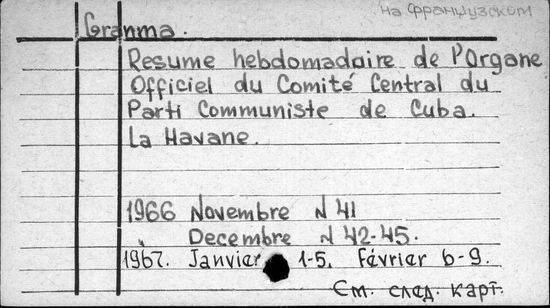 на французском
Granma.
Resume hebdomadaire de l'Organe
Officiel du Comité Central du
Parti Communiste de Cuba.
La Havane.
1966 Novembre N 41
Decembre N 42-45.
1967. Janvier 1-5. Février 6-9.
См. след. карт.